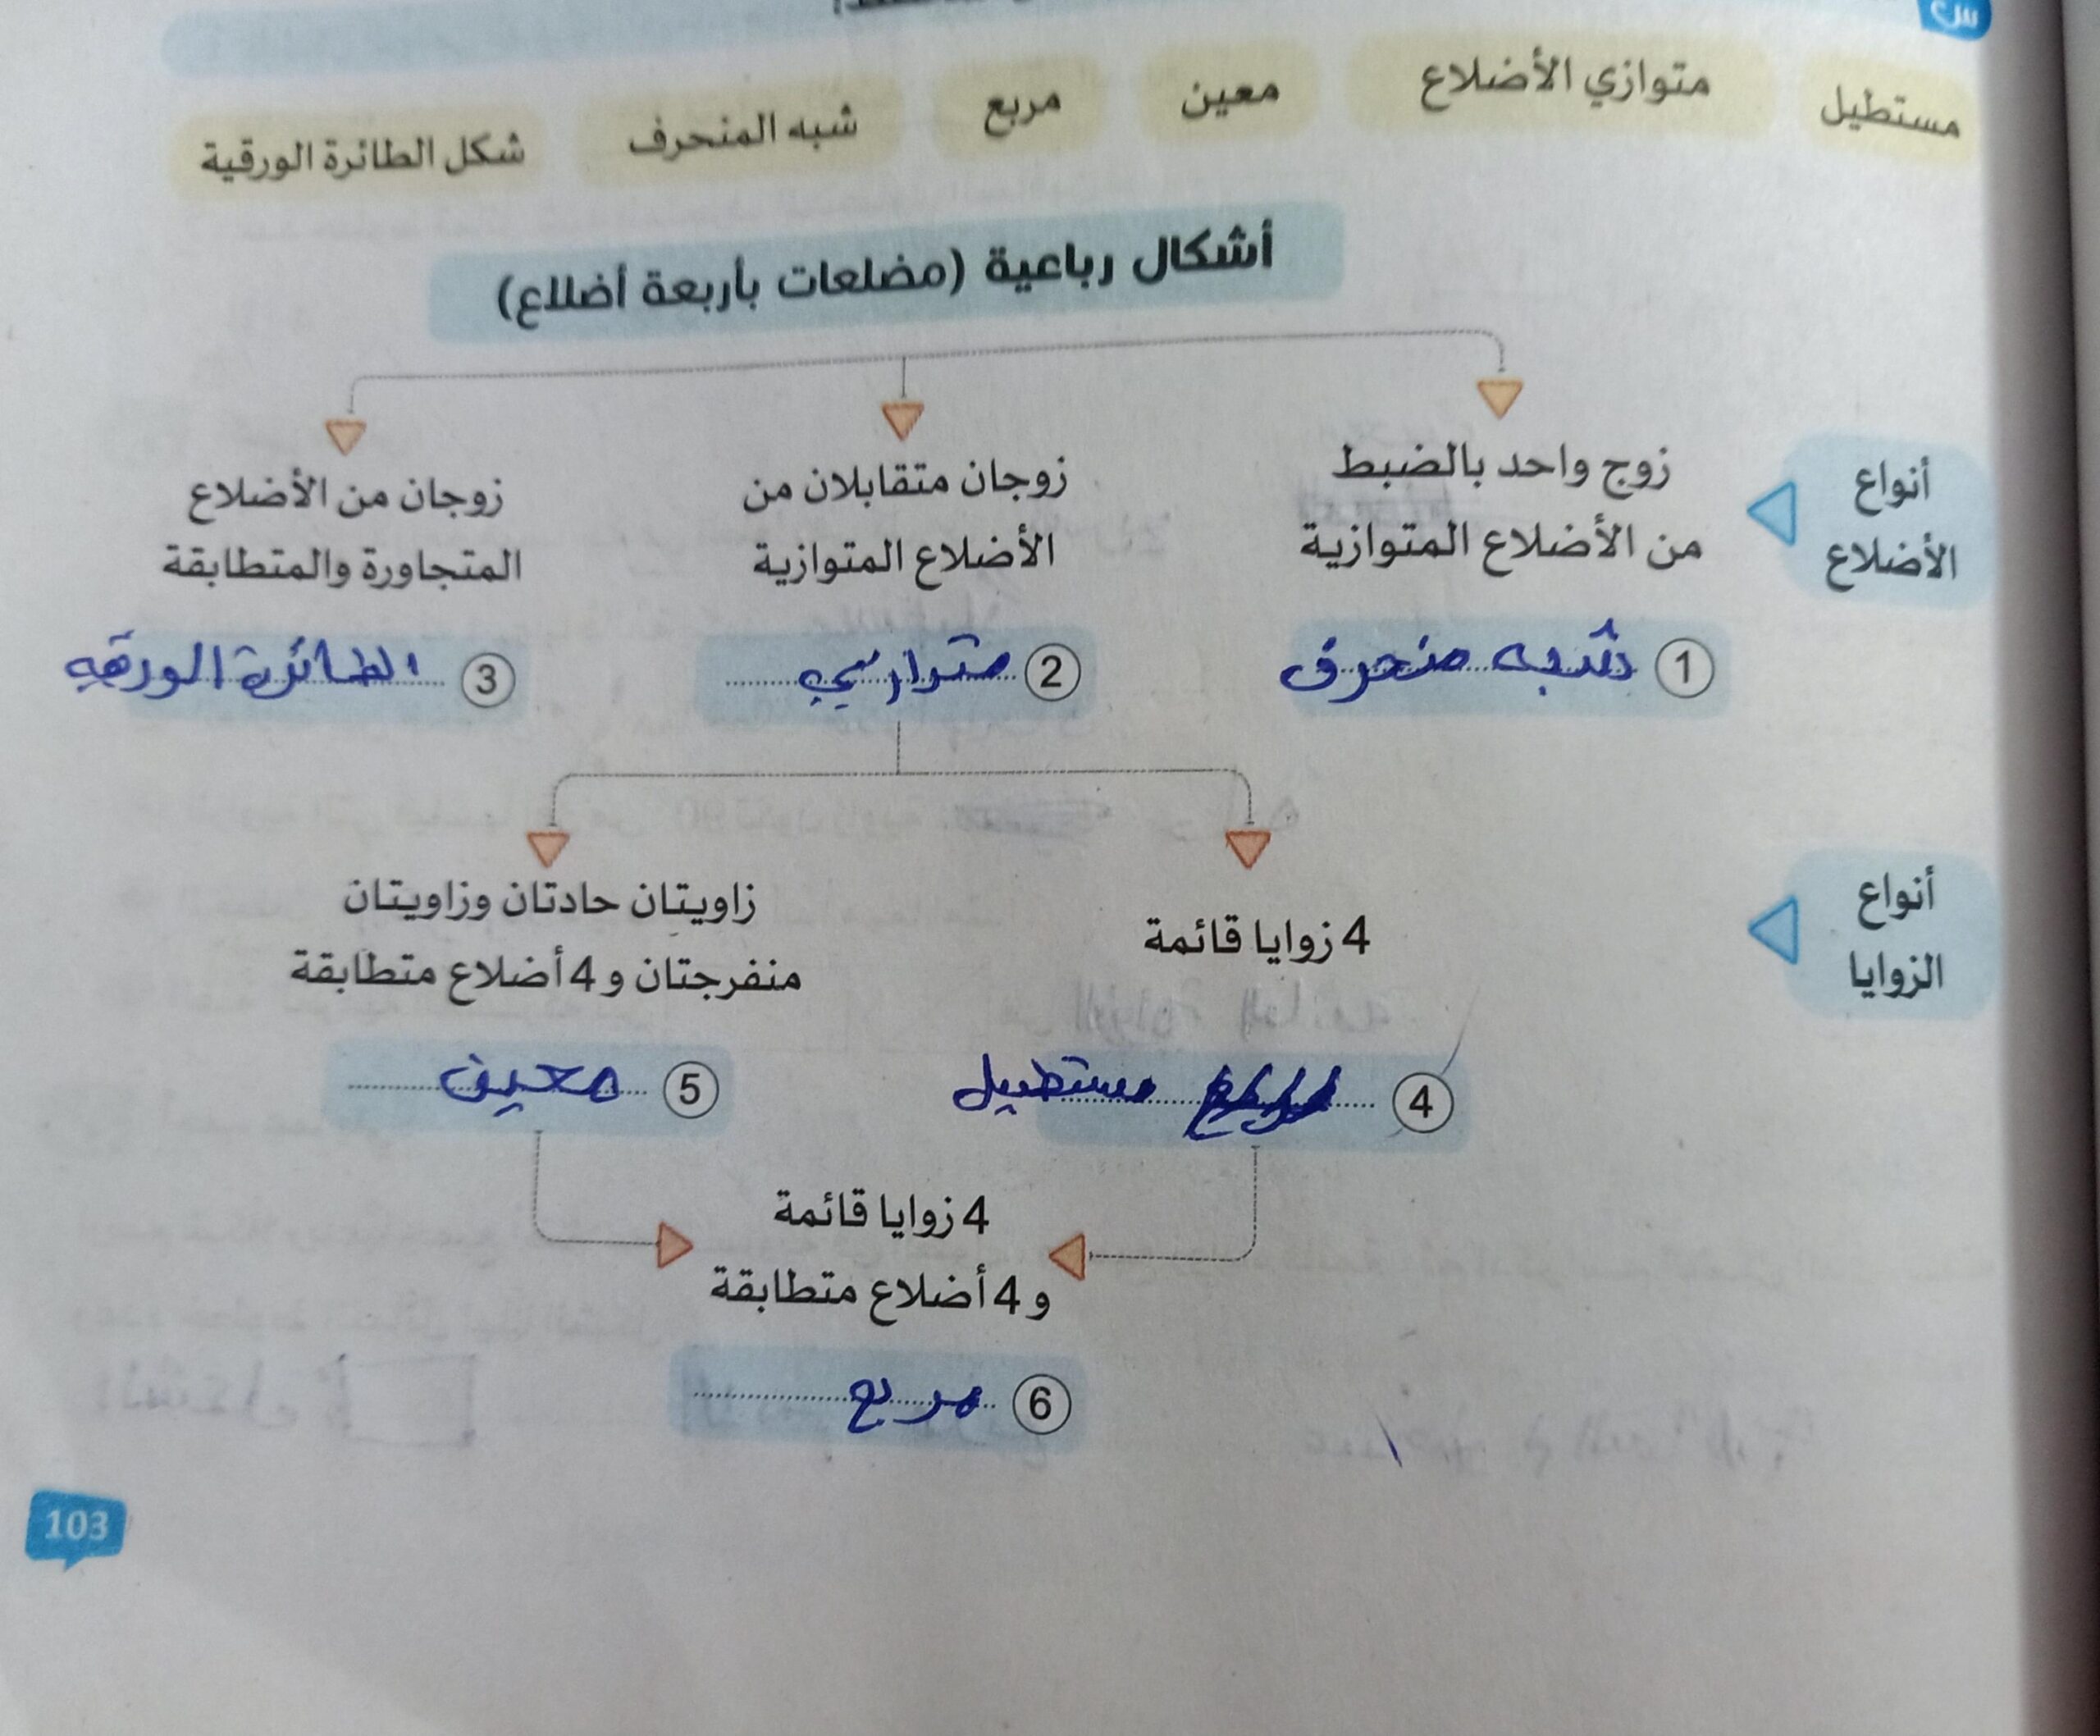 س
مستطيل
متوازي الأضلاع
معين
مربع
شبه المنحرف
شكل الطائرة الورقية
أشكال رباعية (مضلعات بأربعة أضلاع)
أنواع
الأضلاع
زوج واحد بالضبط
من الأضلاع المتوازية
زوجان متقابلان من
الأضلاع المتوازية
زوجان من الأضلاع
المتجاورة والمتطابقة
1 شبه منحرف
2
3 الطائرة الورقيه
أنواع
الزوايا
4 زوايا قائمة
زاويتان حادتان وزاويتان
منفرجتان و 4 أضلاع متطابقة
4 مستطيل
5 معين
4 زوايا قائمة
و 4 أضلاع متطابقة
6 مربع
103